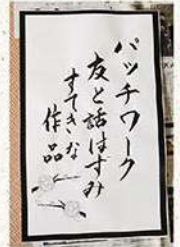 パッチワーク
友と話はずみ
すてきな
作品